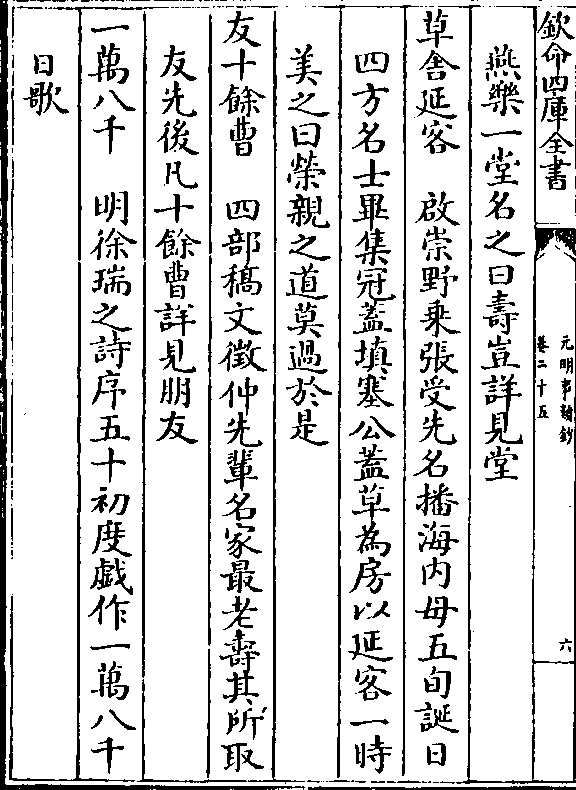 欽命四庫全書
元明事類鈔
卷二十五
六
燕樂一堂名之曰壽豈詳見堂
草舍延客　啟崇野乗張受先名播海内母五旬誕日
四方名士畢集冠蓋填塞公蓋草為房以延客一時
美之曰榮親之道莫過於是
友十餘曹　四部稿文徵仲先輩名家最老壽其所取
友先後凡十餘曹詳見朋友
一萬八千　明徐瑞之詩序五十初度戯作一萬八千
日歌